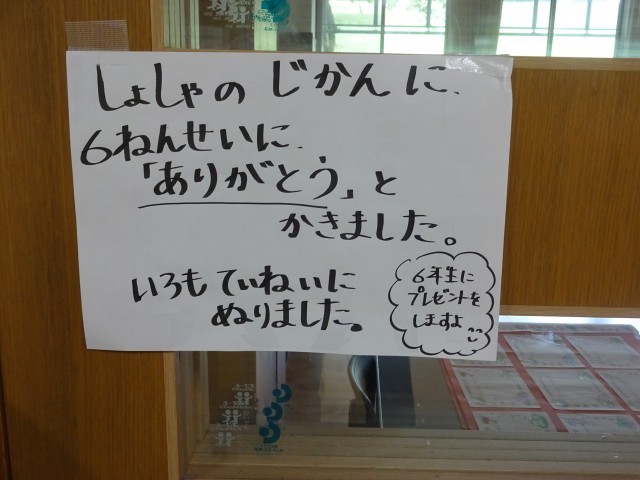 しょしゃの じかんに、
6ねんせいに、
「ありがとう」と
かきました。
いろも ていねいに
ぬりました。
6年生に
プレゼントを
しますよ